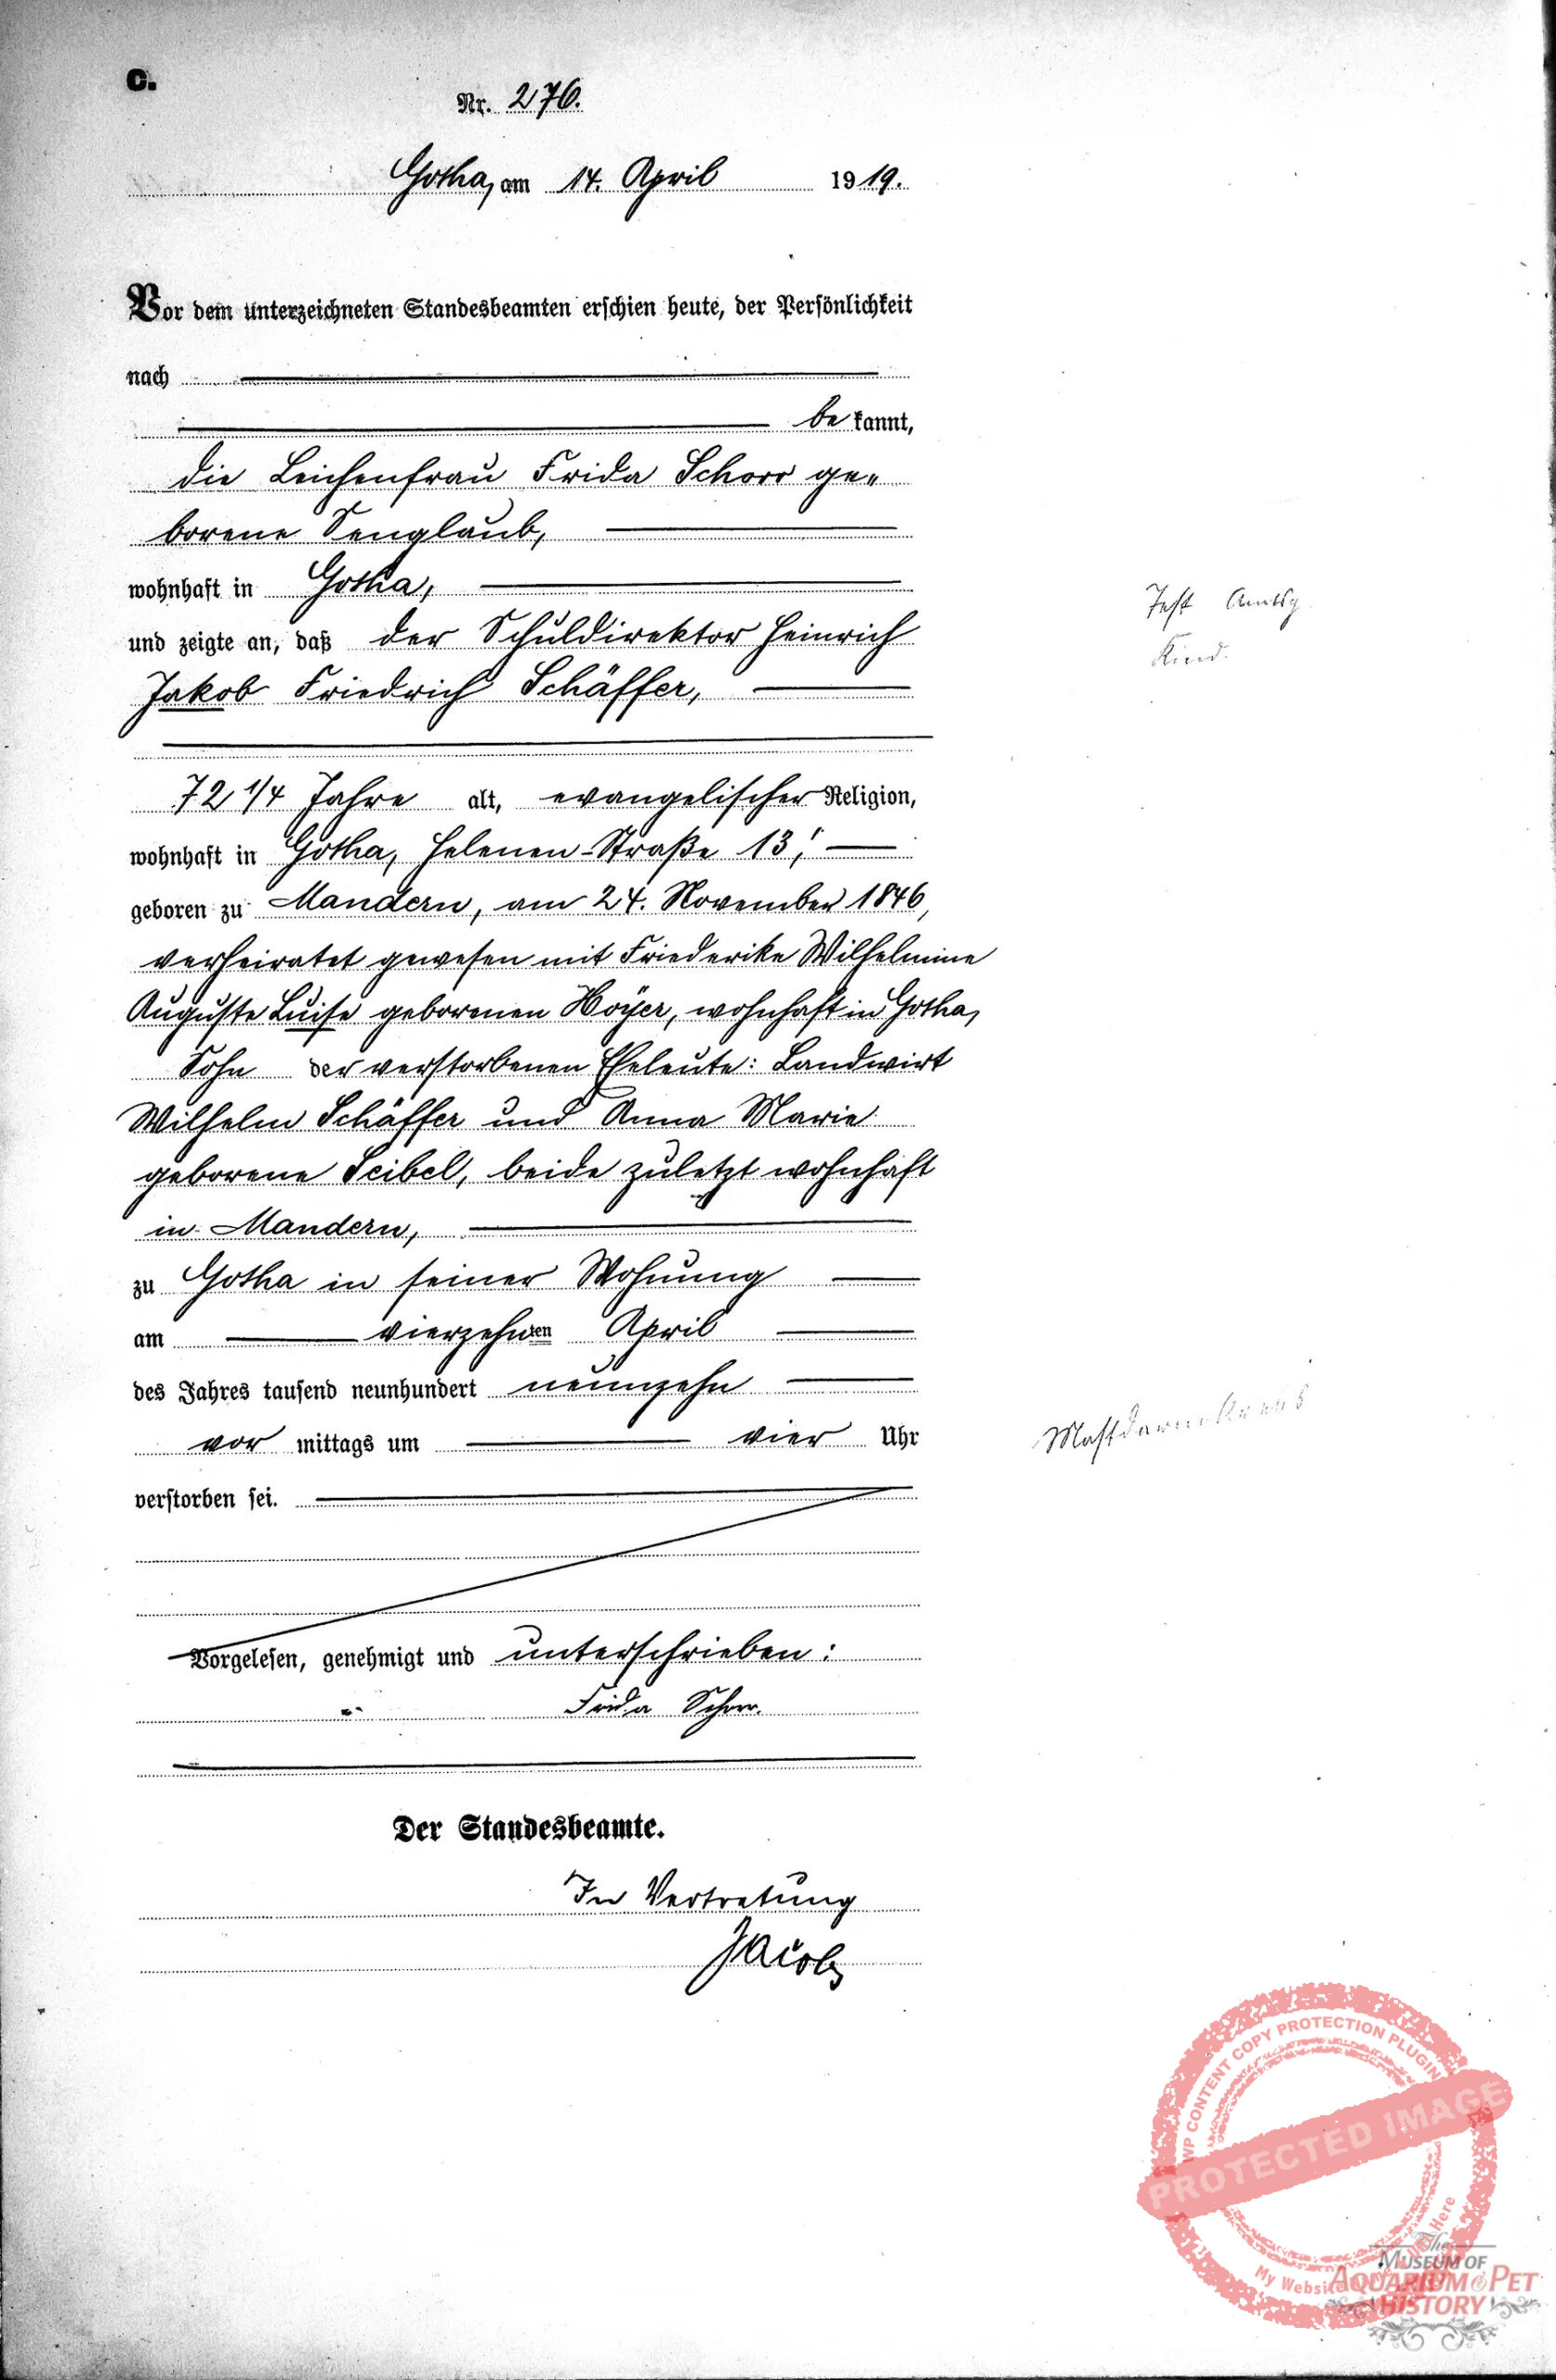 C.
Nr. 276.
Gotha, am 14. April 1919.
Vor dem unterzeichneten Standesbeamten erschien heute, der Persönlichkeit
nach
be kannt,
die Leichenfrau Frida Schorr ge„
borene Senglaub,
wohnhaft in Gotha,
und zeigte an, daß der Schuldirektor Heinrich
Jakob Friedrich Schäffer,
72 1/4 Jahre alt, evangelischer Religion,
wohnhaft in Gotha, Helenen-Straße 13,
geboren zu Mandern, am 24. November 1846,
verheiratet gewesen mit Friederike Wilhelmine
Auguste Luise geborenen Hoÿer, wohnhaft in Gotha,
Sohn der verstorbenen Eheleute: Landwirt
Wilhelm Schäffer und Anna Marie
geborene Seibel, beide zuletzt wohnhaft
in Mandern,
zu Gotha in seiner Wohnung
am vierzehnten April
des Jahres tausend neunhundert neunzehn
vor mittags um vier Uhr
verstorben sei.
Vorgelesen, genehmigt und unterschrieben:
Frida Schorr.
Der Standesbeamte.
In Vertretung
Jacobs
Test Amtsg
Kind.
Mastdarmkrebs
WP CONTENT COPY PROTECTION PLUGIN
PROTECTED IMAGE
My Website Here
The
MUSEUM OF
AQUARIUM & PET
HISTORY